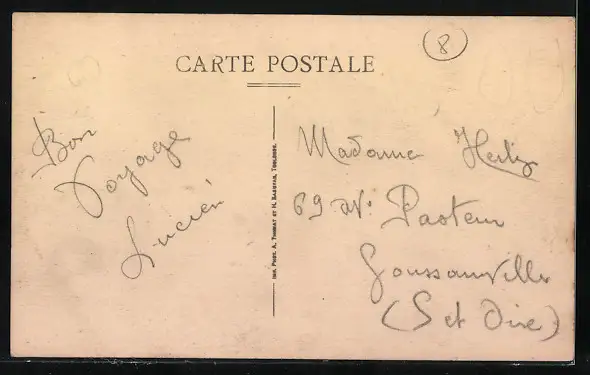 CARTE POSTALE
8
Bon
Voyage
Lucien
Madame
69 av. Pasteur
Goussainville
(S et Oise)
IMP. PHOT. A. THIRIAT ET H. BASUYAU, TOULOUSE.